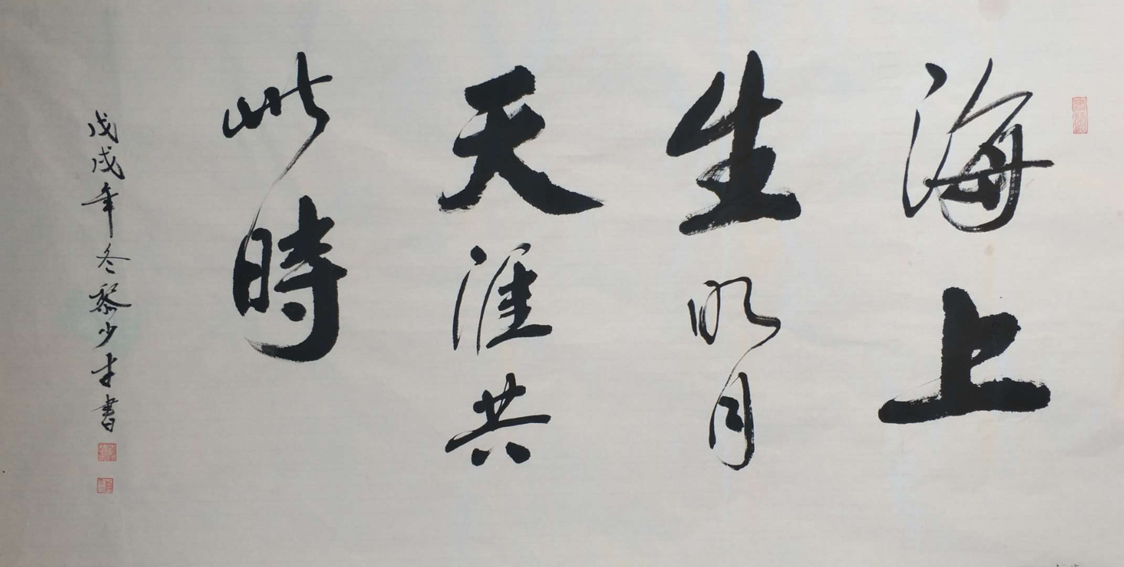 海上
生明月
天涯共
此時
戊戌年冬黎少才書